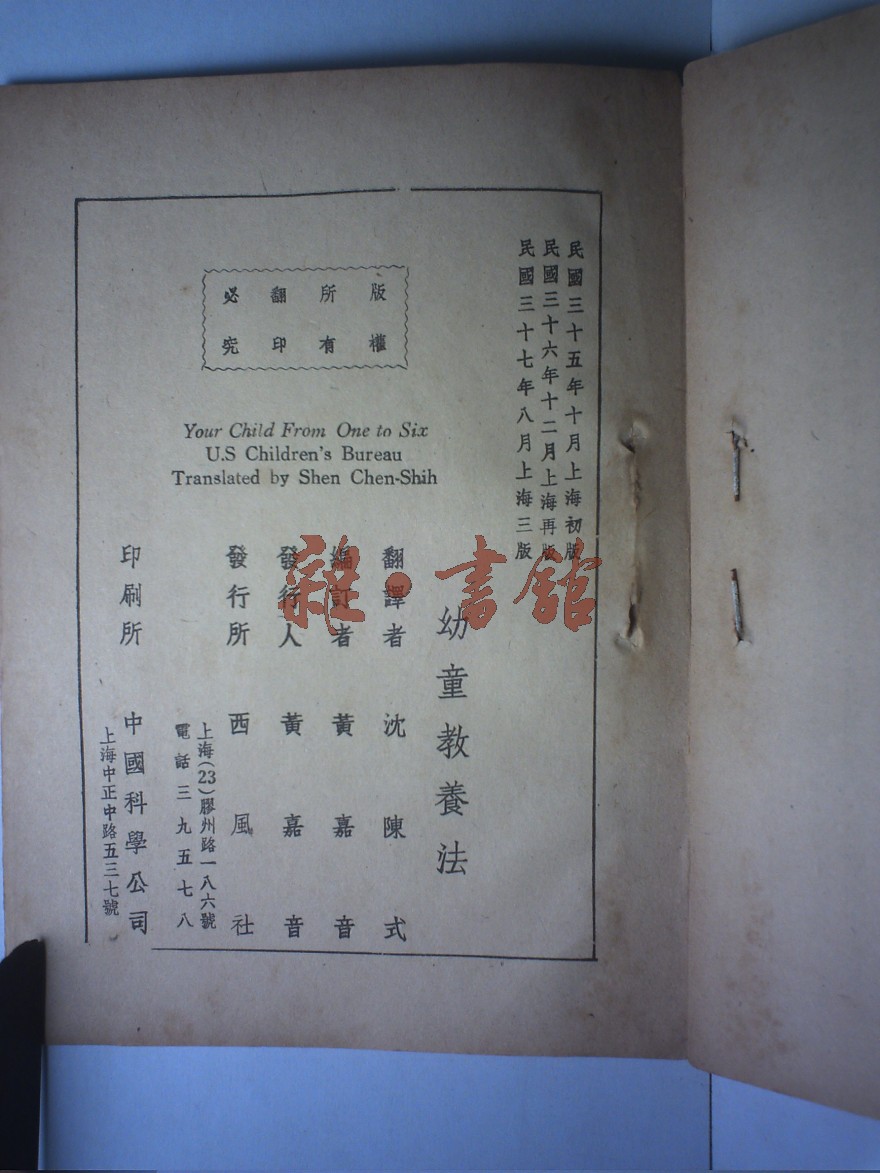 民國三十五年十月上海初版
民國三十六年十二月上海再版
民國三十七年八月上海三版
版權
所有
翻印
必究
Your Child From One to Six
U.S Children's Bureau
Translated by Shen Chen-Shih
幼童教養法
翻譯者 沈陳式
編訂者 黃嘉音
發行人 黃嘉音
發行所 西風社
上海(23)膠州路一八六號
電話三九五七八
印刷所 中國科學公司
上海中正中路五三七號
雜·書館